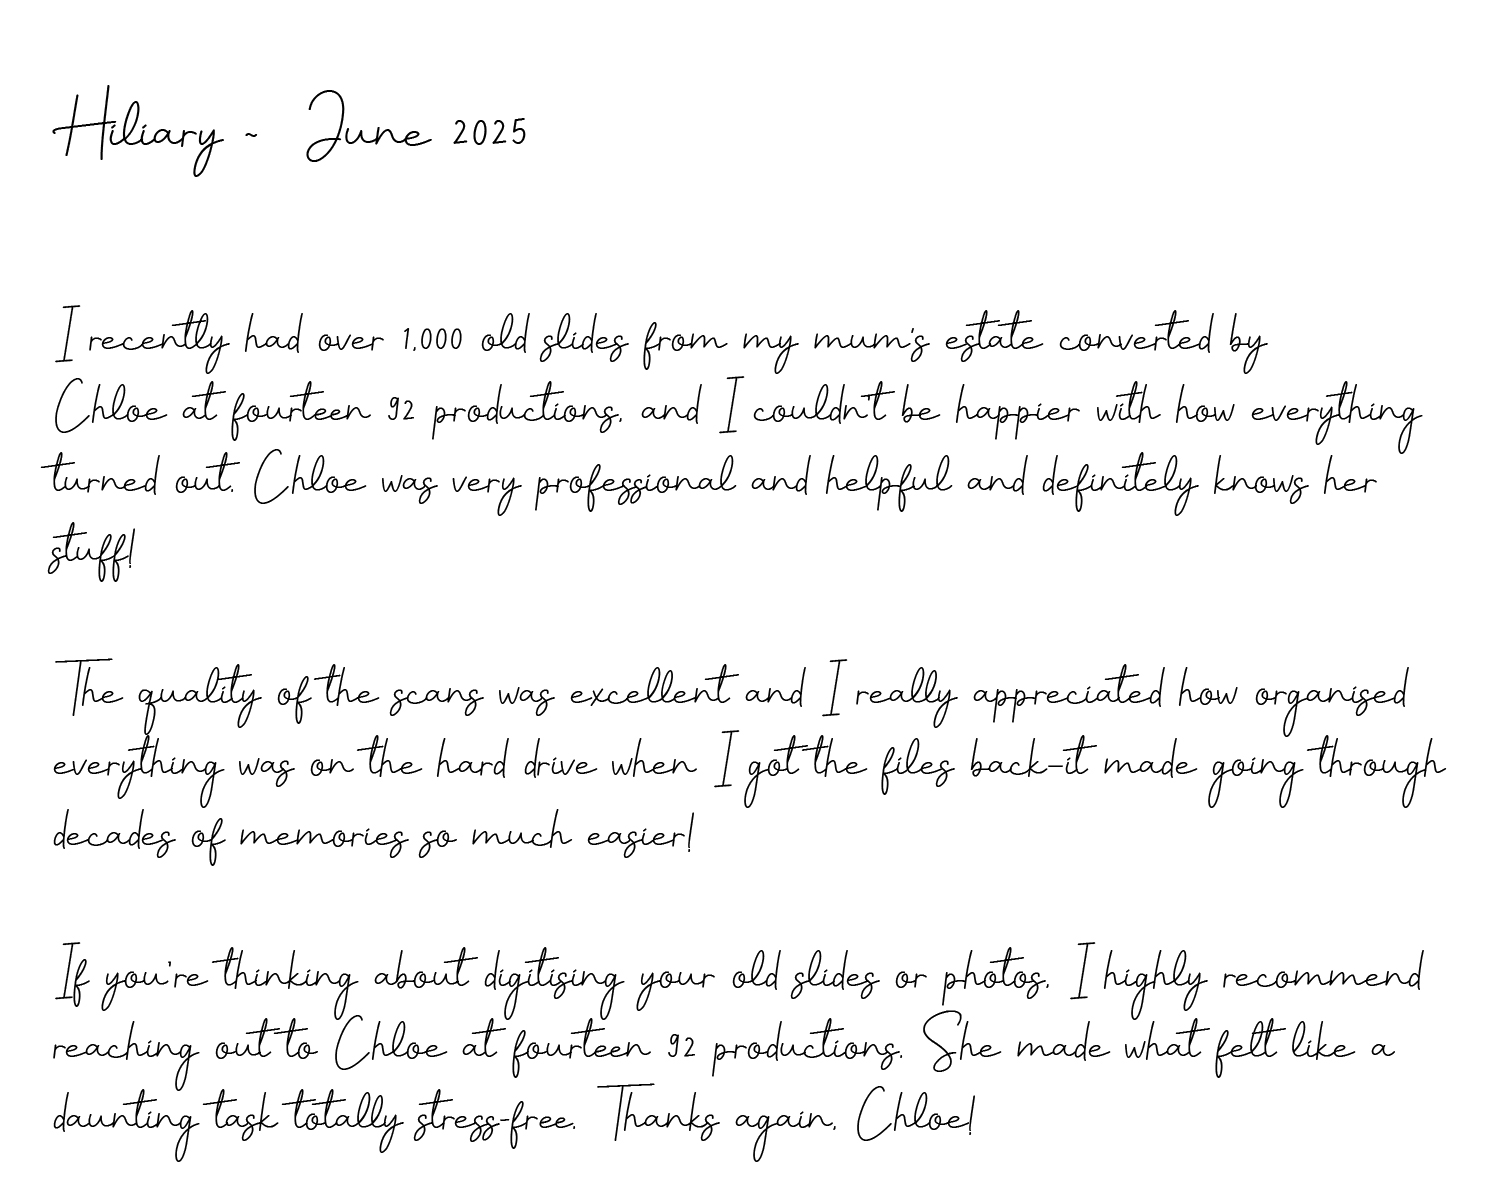 Hiliary ~ June 2025
I recently had over 1,000 old slides from my mum's estate converted by
Chloe at fourteen 92 productions, and I couldn't be happier with how everything
turned out. Chloe was very professional and helpful and definitely knows her
stuff!
The quality of the scans was excellent and I really appreciated how organised
everything was on the hard drive when I got the files back—it made going through
decades of memories so much easier!
If you're thinking about digitising your old slides or photos, I highly recommend
reaching out to Chloe at fourteen 92 productions. She made what felt like a
daunting task totally stress-free. Thanks again, Chloe!